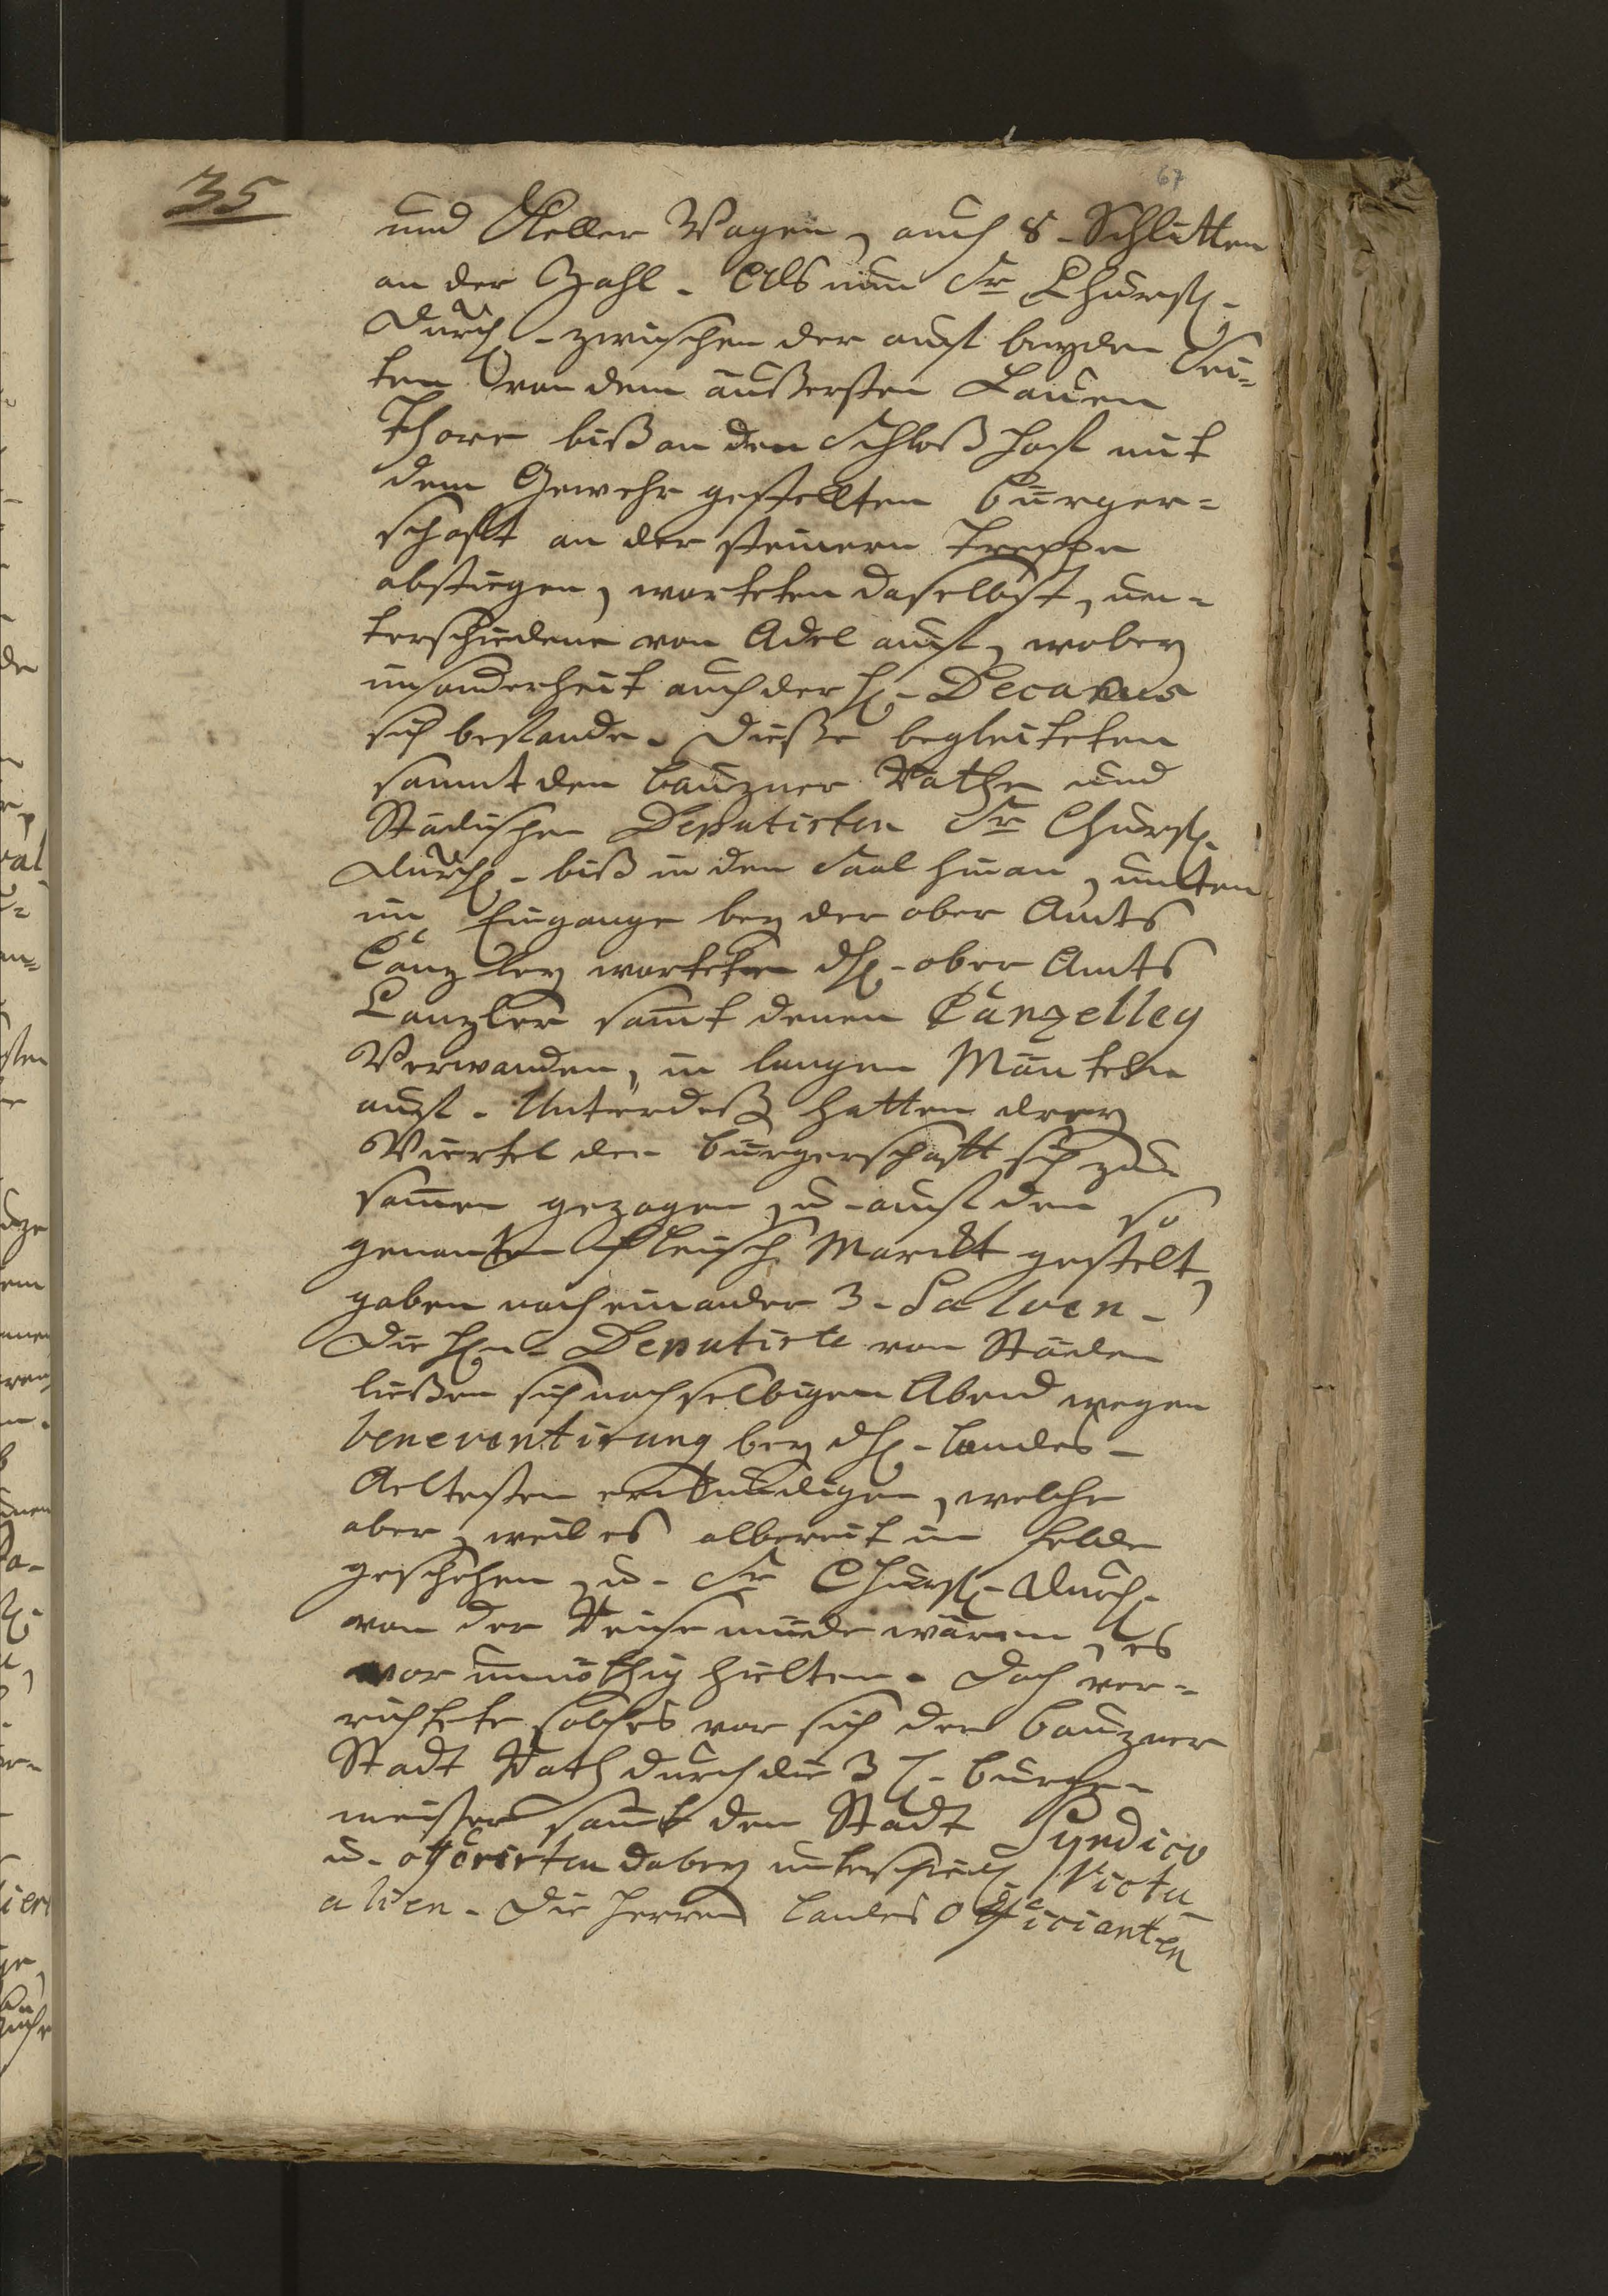 35
67
und Keller Wagen, auch 8. Schlitten
an der Zahl. Als nun Sr Churfl.
Durchl. zwischen der auff beyden Sei=
ten von dem äußersten Lauen
Thore biß an den Schloß Hoff mit
dem Gewehr gestellten Bürger=
schafft an der steinern Treppe
abstiegen, warteten daselbst, un=
terschiedene von Adel auff, wobey
insonderheit auch der H. Decanus
sich befande. Diese begleiteten
sammt den Bauzner Rathe und
Städischen Deputirten Sr Churfl.
Durchl. biß in den Saal hinan, unten
im Eingange bey der ober Amts
Cänzley warteten dH. ober Amts
Canzler samt denen Cänzelley
Verwanden, in langen Mänteln
auff. Unterdeß hatten drey
Viertel der Bürgerschafft sich zu=
samen gezogen, u. auff den so
genanten Fleisch Marckt gestelt,
gaben nach einander 3. Salven.
Die Hn. Deputirte von Städen
ließen sich noch selbigen Abend wegen
beneventirung bey dH. Landes=
Aeltesten erkundigen, welche
aber, weil es albereit im Felde
geschehen, u. Sr Churfl. Durchl.
von der Reise müde wären, es
vor unnöthig hielten. Doch ver=
richtete solches vor sich der Bauzner
Stadt Rath durch die 3 H. Bürge=
meister samt dem Stadt Syndico
u. offerirten dabey unterschiedl. Victu=
alien. Die Herren Landes Officianten